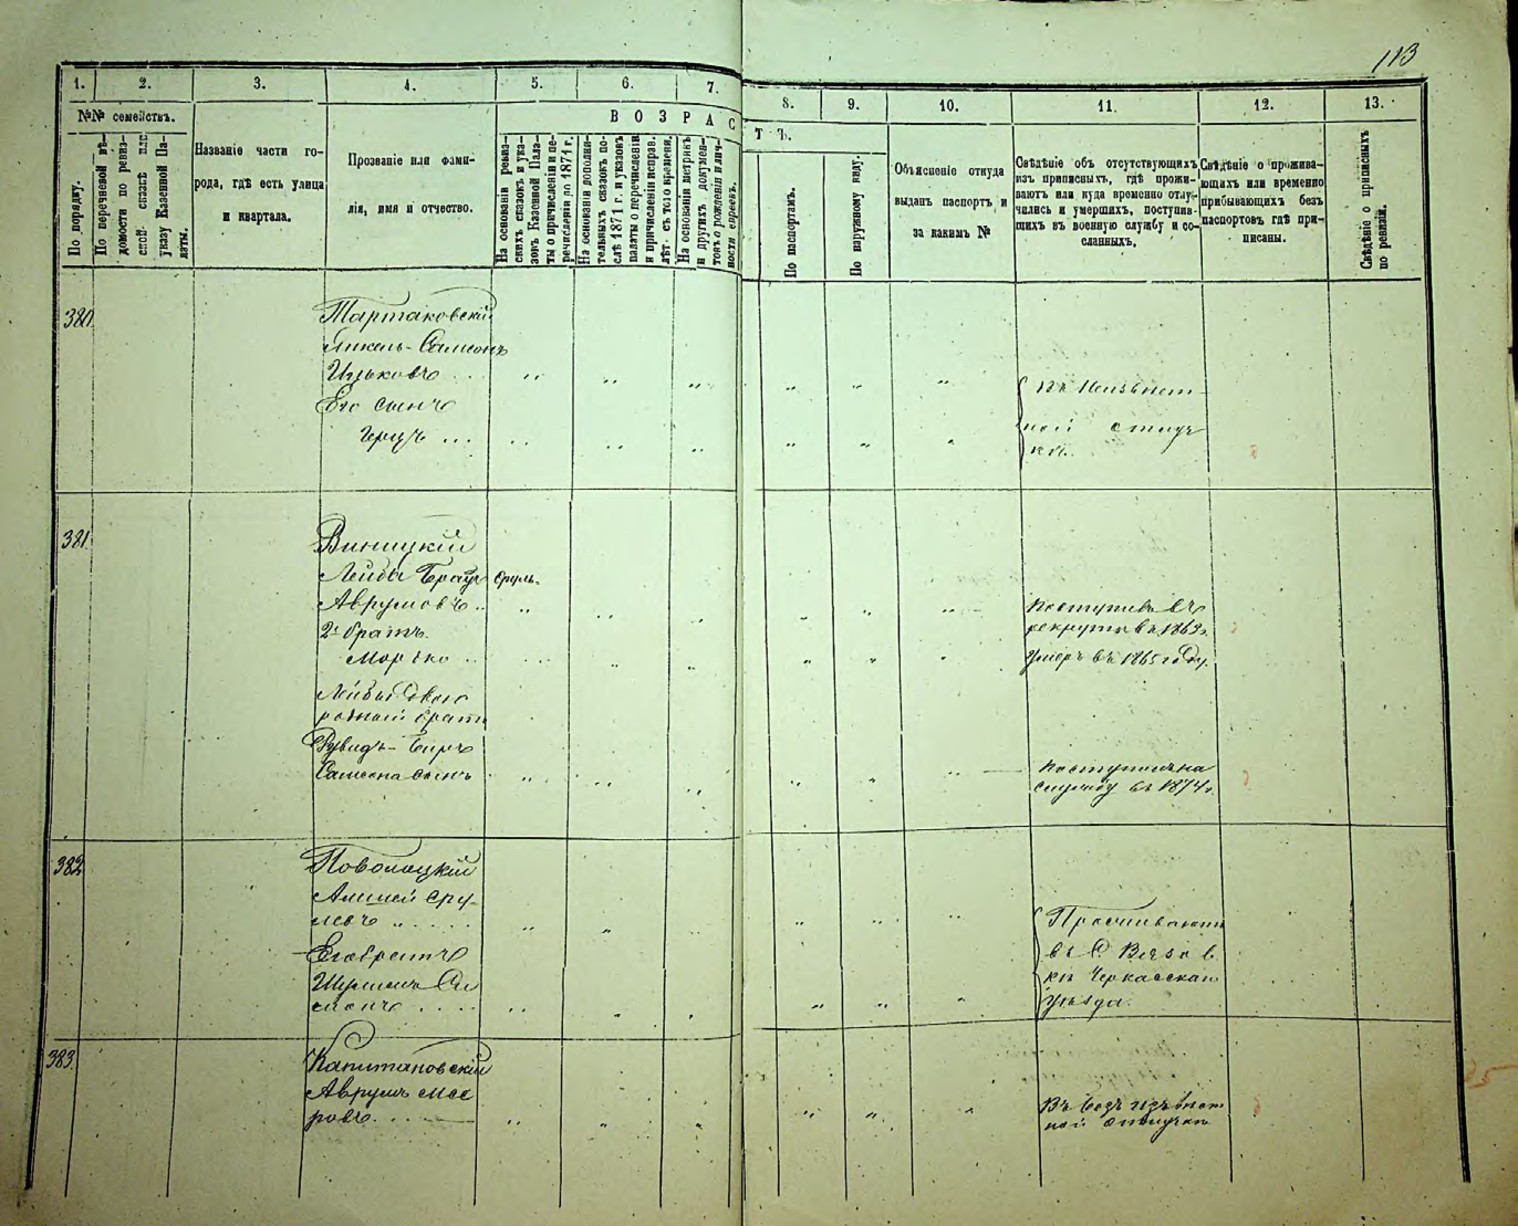 113
1.
2.
3.
4.
5.
6.
7.
8.
9.
10.
11.
12.
13.
№№ семействъ.
По порядку.
По перечневой вѣ-
домости по ревиз-
ской сказкѣ или
указу Казенной Па-
латы.
Названіе части го-
рода, гдѣ есть улица
и квартала.
Прозваніе или фами-
лія, имя и отчество.
ВОЗРАС
ТЪ.
На основаніи ревиз-
скихъ сказокъ и ука-
зовъ Казенной Пала-
ты о причисленіи и пе-
речисленіи до 1871 г.
На основаніи дополни-
тельныхъ сказокъ по-
слѣ 1871 г. и указовъ
палаты о перечисленіи
и причисленіи исправ.
лѣт. съ того времени.
На основаніи метрикъ
и другихъ докумен-
товъ о рожденіи и лич-
ности евреевъ.
По паспортамъ.
По наружному виду.
Объясненіе откуда
выданъ паспортъ и
за какимъ №
Свѣдѣніе объ отсутствующихъ
изъ приписныхъ, гдѣ прожи-
ваютъ или куда временно отлу-
чились и умершихъ, поступив-
щихъ въ военную службу и со-
сланныхъ.
Свѣдѣніе о прожива-
ющихъ или временно
прибывающихъ безъ
паспортовъ гдѣ при-
писаны.
Свѣдѣніе о приписныхъ
по ревизіи.
380
Тартаковскій
Самсонъ
Ицьковъ
Его сынъ
Герцъ
въ Неизвѣст
ной отлуч
кѣ.
381.
Виницкій
Лейба Сруль
Аврумовъ
2й братъ
Мошко
Поступивъ въ
рекруты въ 1863 г.
Умеръ въ 1865 году.
Лейбы двою
родный братъ
Самсона сынъ
поступилъ на
службу въ 1874 г.
382
Поволоцкій
Сру-
левъ
Его братъ
Проживаютъ
въ
Черкасскаго
уѣзда.
383
Капитановскій
Аврумъ Мее
ровъ
Въ безъ извѣст
ной отлучкѣ